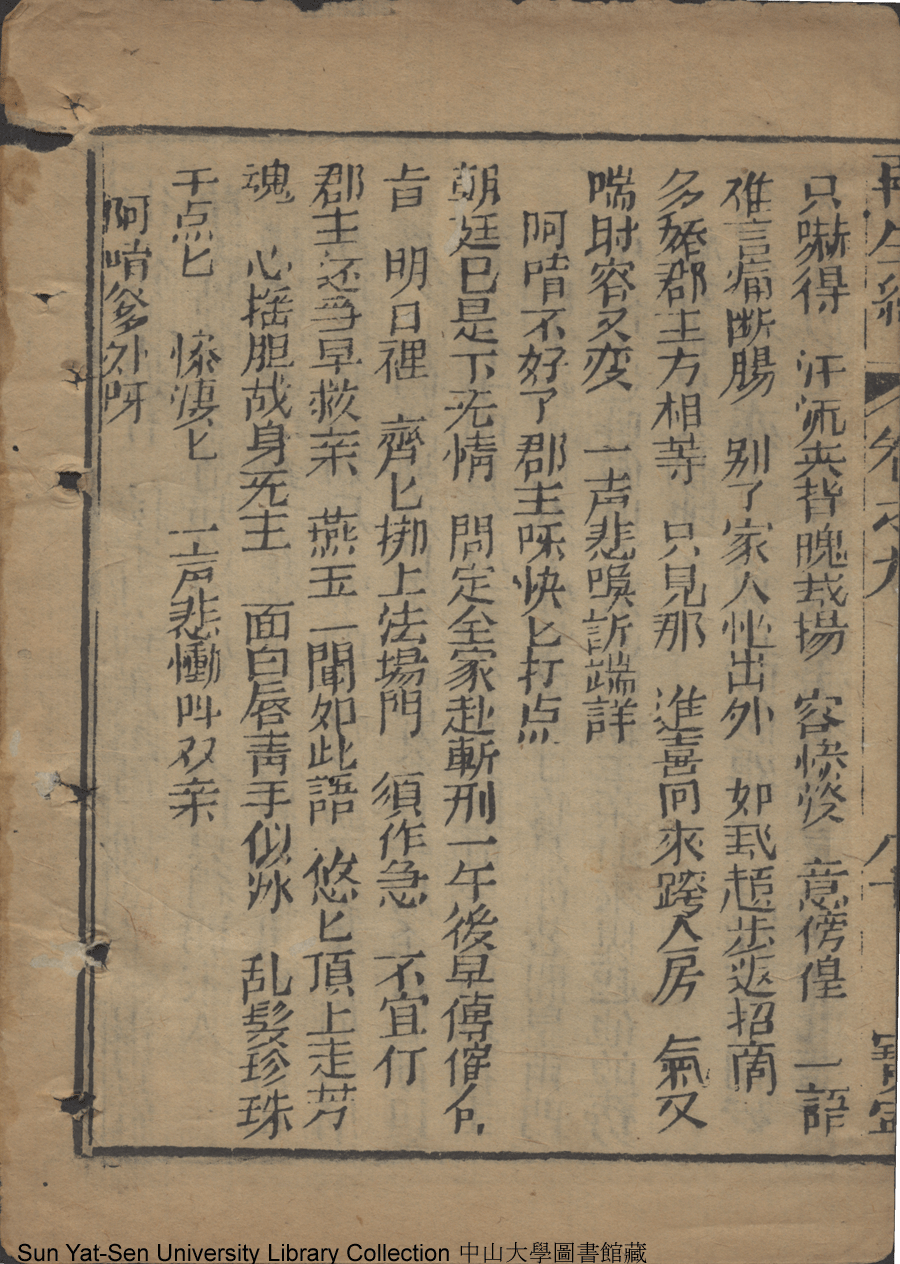 再生緣 卷之九
只嚇得 汗流夾背魄哉揚 容慘淡 意傍徨 一語
难言痛断腸 别了家人怆出外 如飛趨步返招商
多嬌郡主方相等 只見那 進喜囘來跨入房 氣又
喘时容又变 一声悲喚訴端詳
阿唷不好了郡主呀快匕打点
朝廷已是下无情 問定全家赴斬刑 午後早傳催
旨 明日裡 齊匕挷上法塲門 須作急 不宜仃
郡主还爭早救亲 燕玉一聞如此語 悠匕頂上走芳
魂 心摇胆战身无主 面白唇青手似冰 乱髮珍珠
千点匕 慘凄匕 一声悲慟叫双亲
阿唷爹外呀
Sun Yat-Sen University Library Collection 中山大學圖書館藏